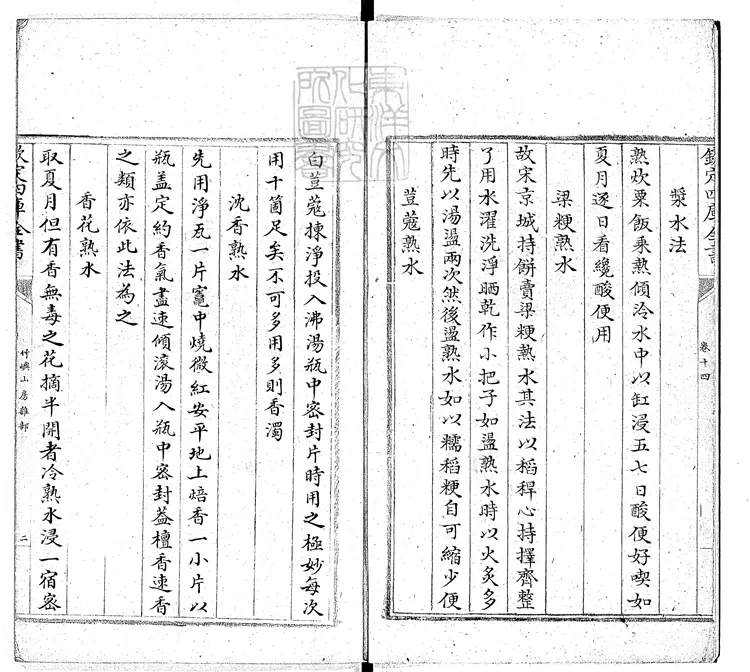 欽定四庫全書
卷十四
漿水法
熟炊粟飯乘熱傾冷水中以缸浸五七日酸便好喫如
夏月逐日看纔酸便用
梁粳熟水
故宋京城持餅賣梁粳熟水其法以稻稈心持擇齊整
了用水濯洗淨晒乾作小把子如盪熟水時以火炙多
時先以湯盪兩次然後盪熟水如以糯稻粳自可縮少便
荳蔻熟水
白荳蔻揀淨投入沸湯瓶中密封片時用之極妙每次
用十箇足矣不可多用多則香濁
沈香熟水
先用淨瓦一片竈中燒微紅安平地上焙香一小片以
瓶盖定約香氣盡速傾滾湯入瓶中密封葢檀香速香
之類亦依此法為之
香花熟水
取夏月但有香無毒之花摘半開者冷熟水浸一宿密
欽定四庫全書
竹嶼山房雜部
二